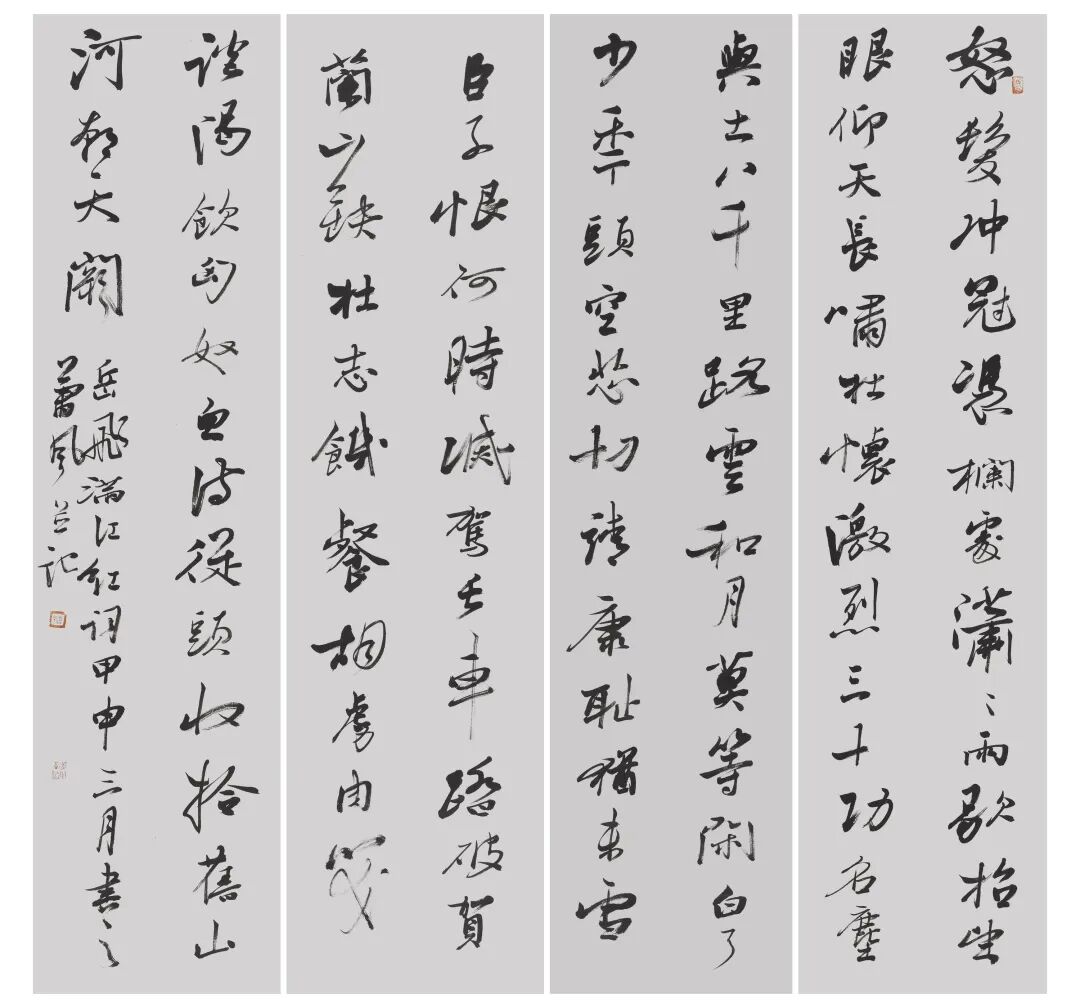 怒髮冲冠憑欄處瀟〻雨歇抬望
眼仰天長嘯壯懷激烈三十功名塵
與土八千里路雲和月莫等閑白了
少年頭空悲切靖康恥猶未雪
臣子恨何時滅駕長車踏破賀
蘭山缺壯志饑餐胡虜肉笑
談渴飲匈奴血待從頭收拾舊山
河朝天闕
岳飛滿江紅词甲申三月書之
蕭風并记